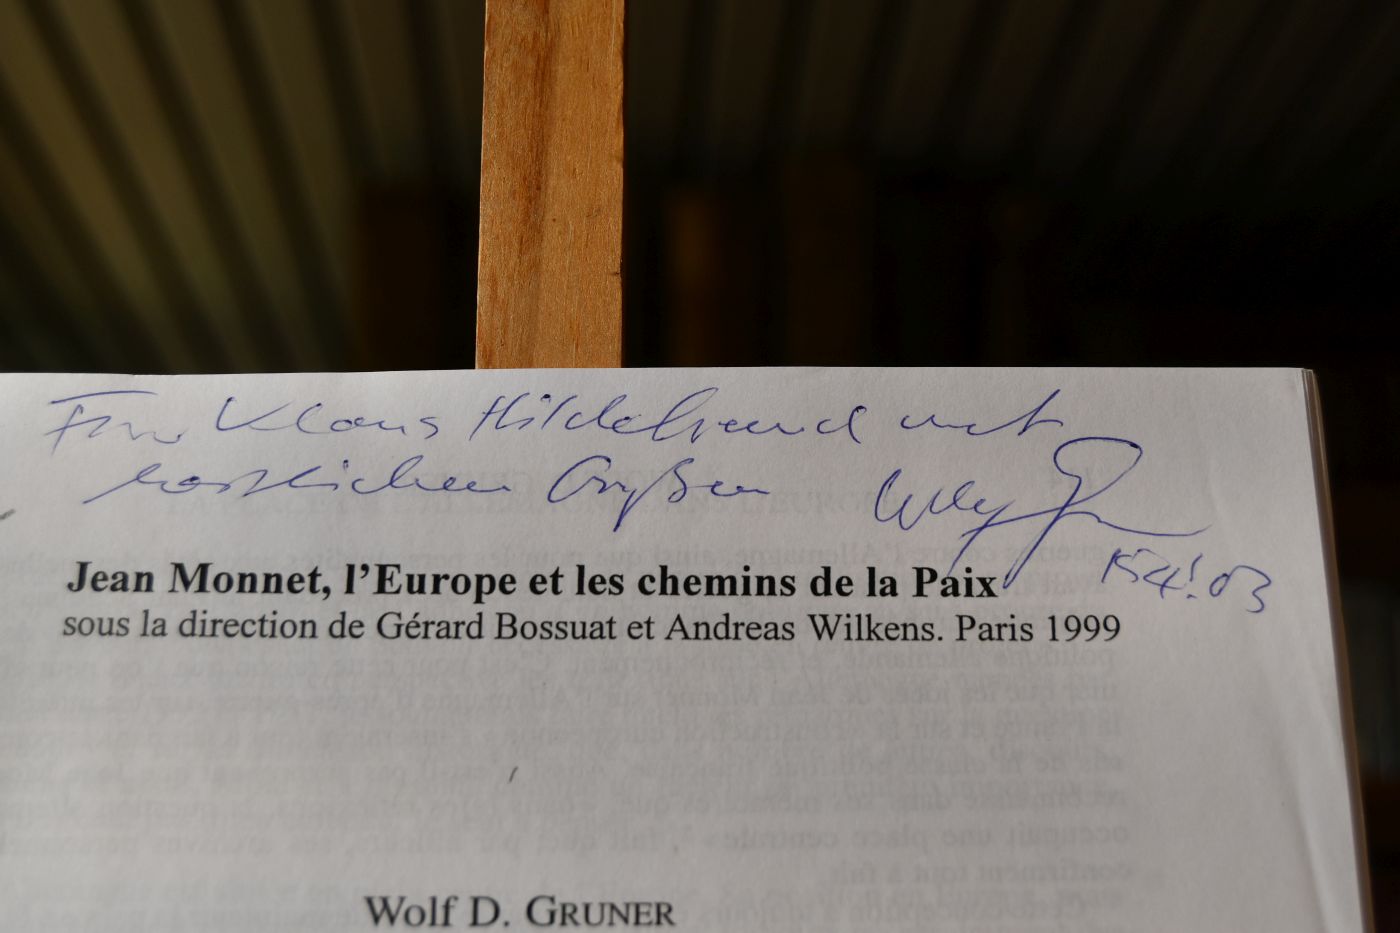 Für Klaus Hildebrand mit
herzlichen Grüßen
15.4.03
Jean Monnet, l’Europe et les chemins de la Paix
sous la direction de Gérard Bossuat et Andreas Wilkens. Paris 1999
Wolf D. GRUNER